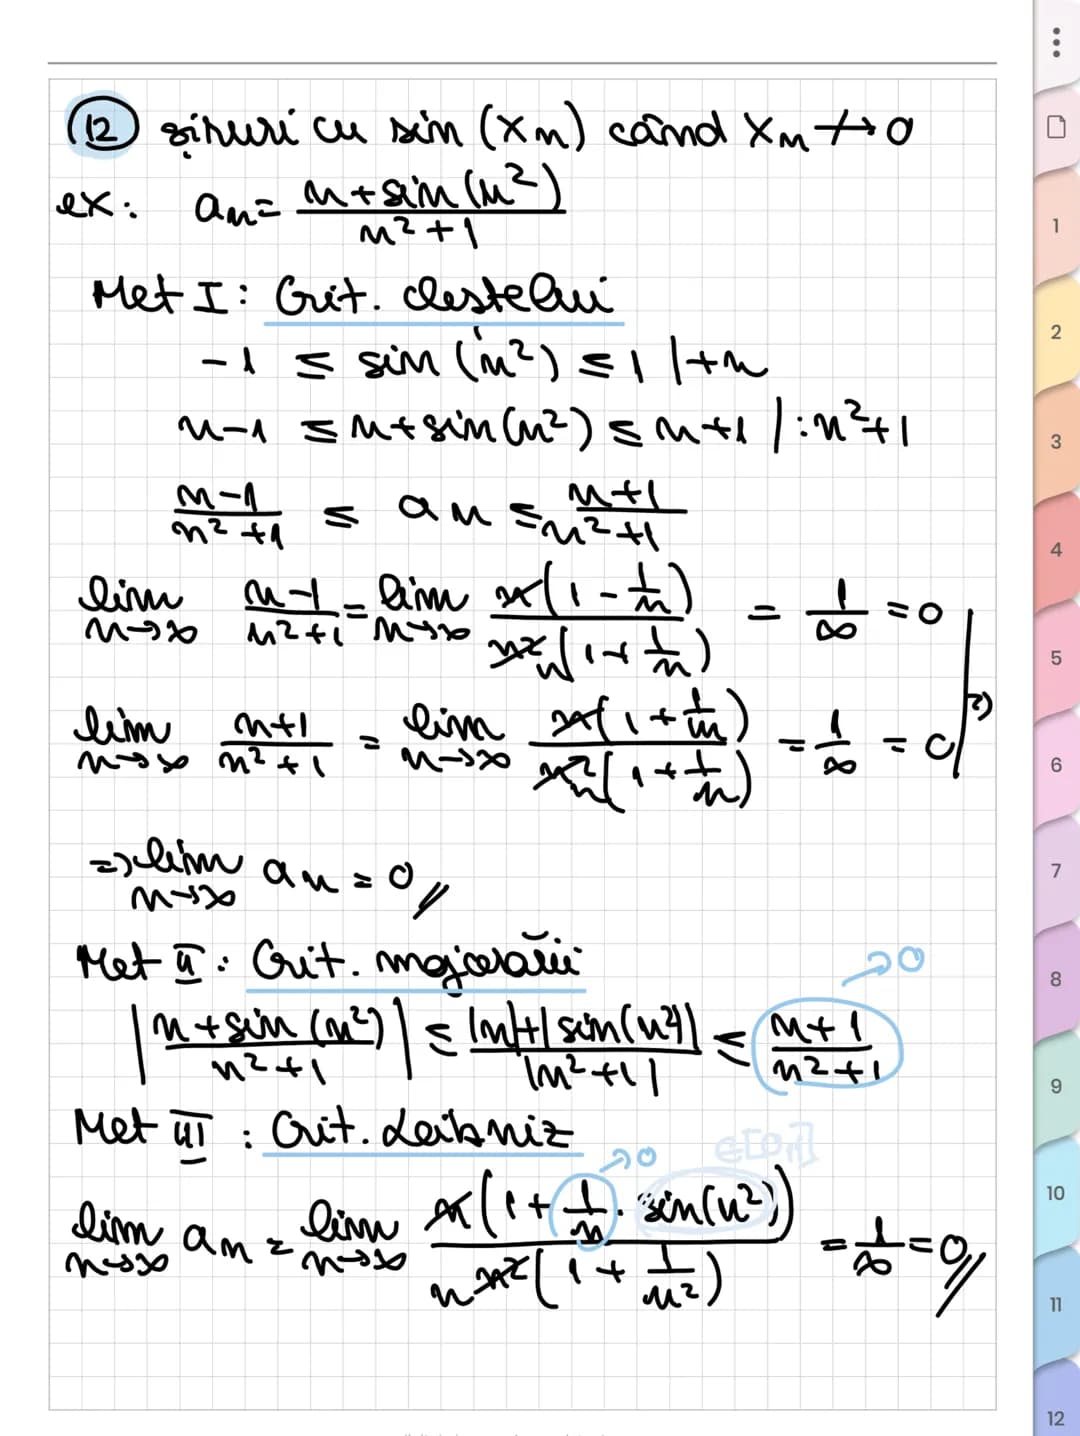 12 șiruri cu sin (xn) când xn ↛ 0
ex: an = (n + sin(n²)) / (n² + 1)
Met I: Crit. cleștelui
-1 ≤ sin(n²) ≤ 1 | +n
n-1 ≤ n + sin(n²) ≤ n+1 | : n²+1
(n-1)/(n²+1) ≤ an ≤ (n+1)/(n²+1)
lim n→∞ (n-1)/(n²+1) = lim n→∞ n(1 - 1/n) / n²(1 + 1/n) = 1/∞ = 0
lim n→∞ (n+1)/(n²+1) = lim n→∞ n(1 + 1/n) / n²(1 + 1/n) = 1/∞ = 0 | =>
=> lim n→∞ an = 0
Met II: Crit. majorării
|(n + sin(n²)) / (n²+1)| ≤ (|n| + |sin(n²)|) / |n²+1| ≤ (n+1)/(n²+1) → 0
Met III: Crit. Leibniz
→0 ∈[0,1]
lim n→∞ an = lim n→∞ n(1 + 1/n · sin(n²)) / n n²(1 + 1/n²) = 1/∞ = 0
1
2
3
4
5
6
7
8
9
10
11
12